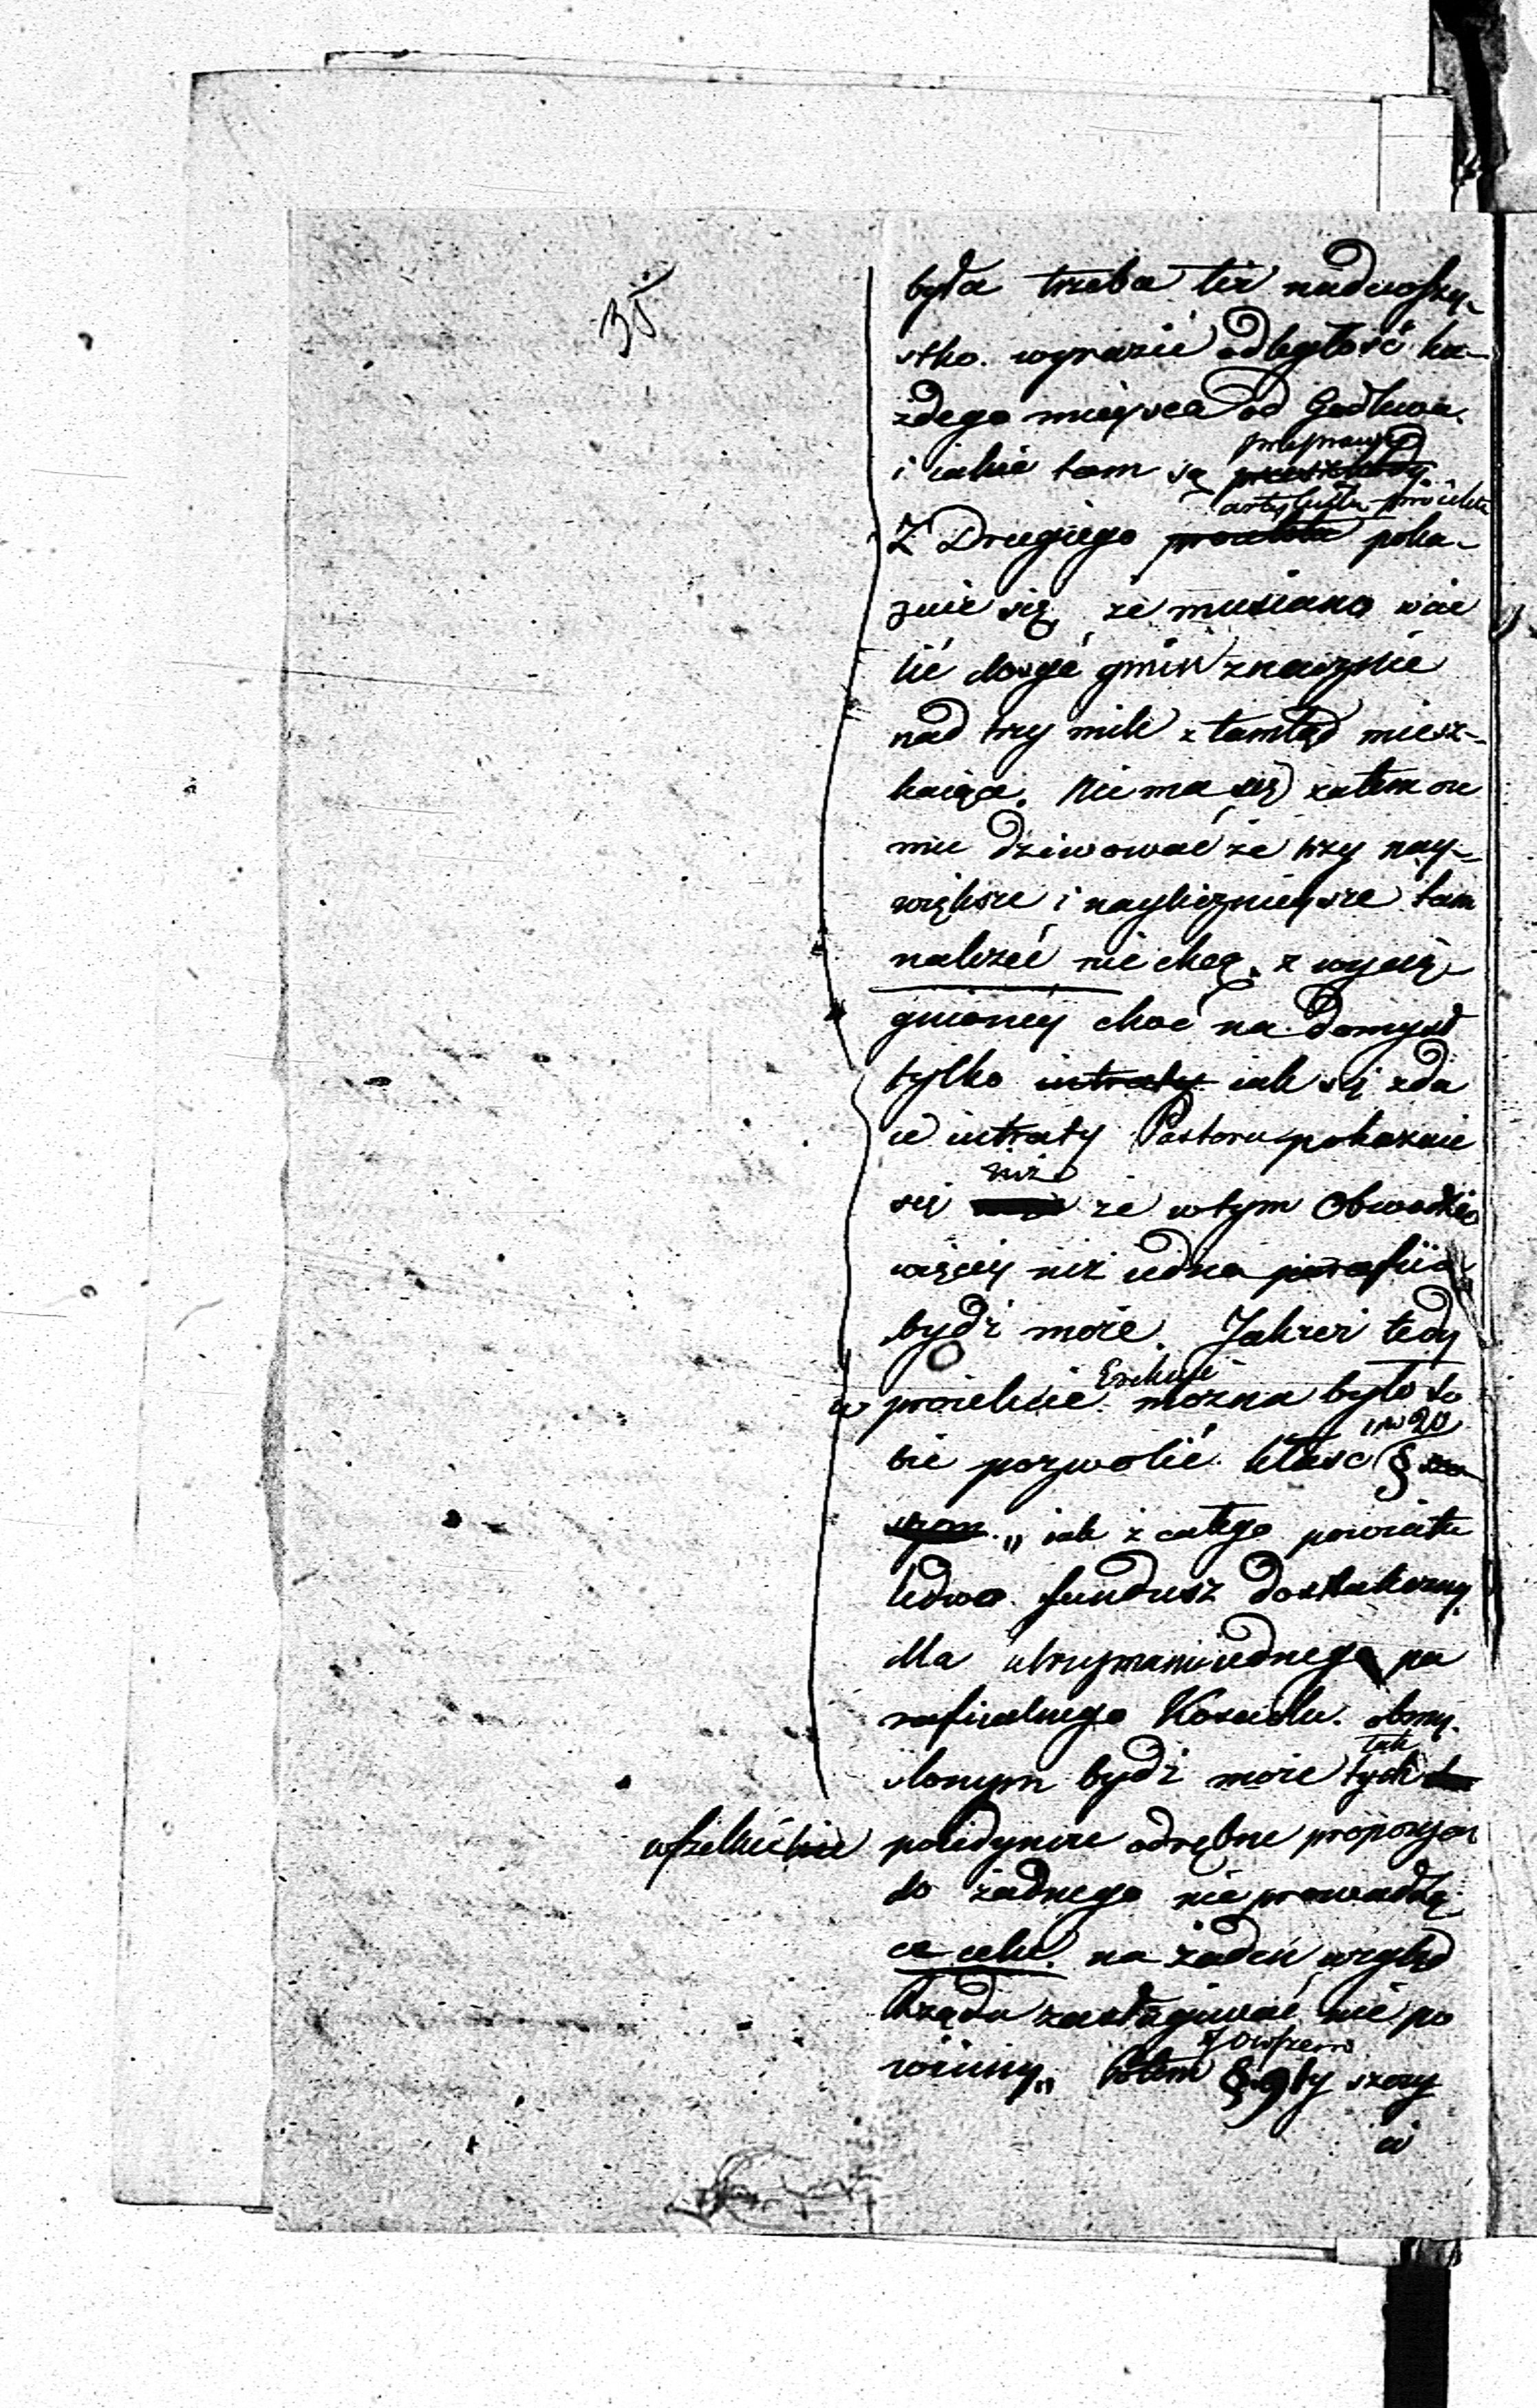 35
była trzeba też nadwszy-
stko. wyrazić odległość ka-
żdego mieysca od Godlewa.
przeprawy
i iakie tam są przeszkody
artykułu proiektu
Z Drugiego proiektu poka-
zuie się, że musiano wcie
lić dosyć gmin znacznie
nad trzy mile z tamtąd miesz-
kaiące. Nie ma się zatem cze
mu dziwować że trzy nay-
większe i naylicznieysze tam
należeć nie chcą. z wycią-
gnioney choć na Domysł
tylko intraty iak się zda
ie intraty Pastoru pokazuie
niż
się że w tym Obwodzie
więcey niż iedna parafiia
bydź może. Jakżeż tedy
Erekcyi
w proiekcie można było so
bie pozwolić kłaść § 20
„ iak z całego powiatu
ledwo fundusz dostateczny
dla utrzymania iednego pa
rafialnego Kościoła. obmy-
tak
ślonym bydź może tych
wszelkie poiedyncze odrębne propozycye
do żadnego nie prowadzą-
ce celu. na żaden wzgląd
Rządu zasługiwać nie po
winny„ Potem § 9ty szczy
w